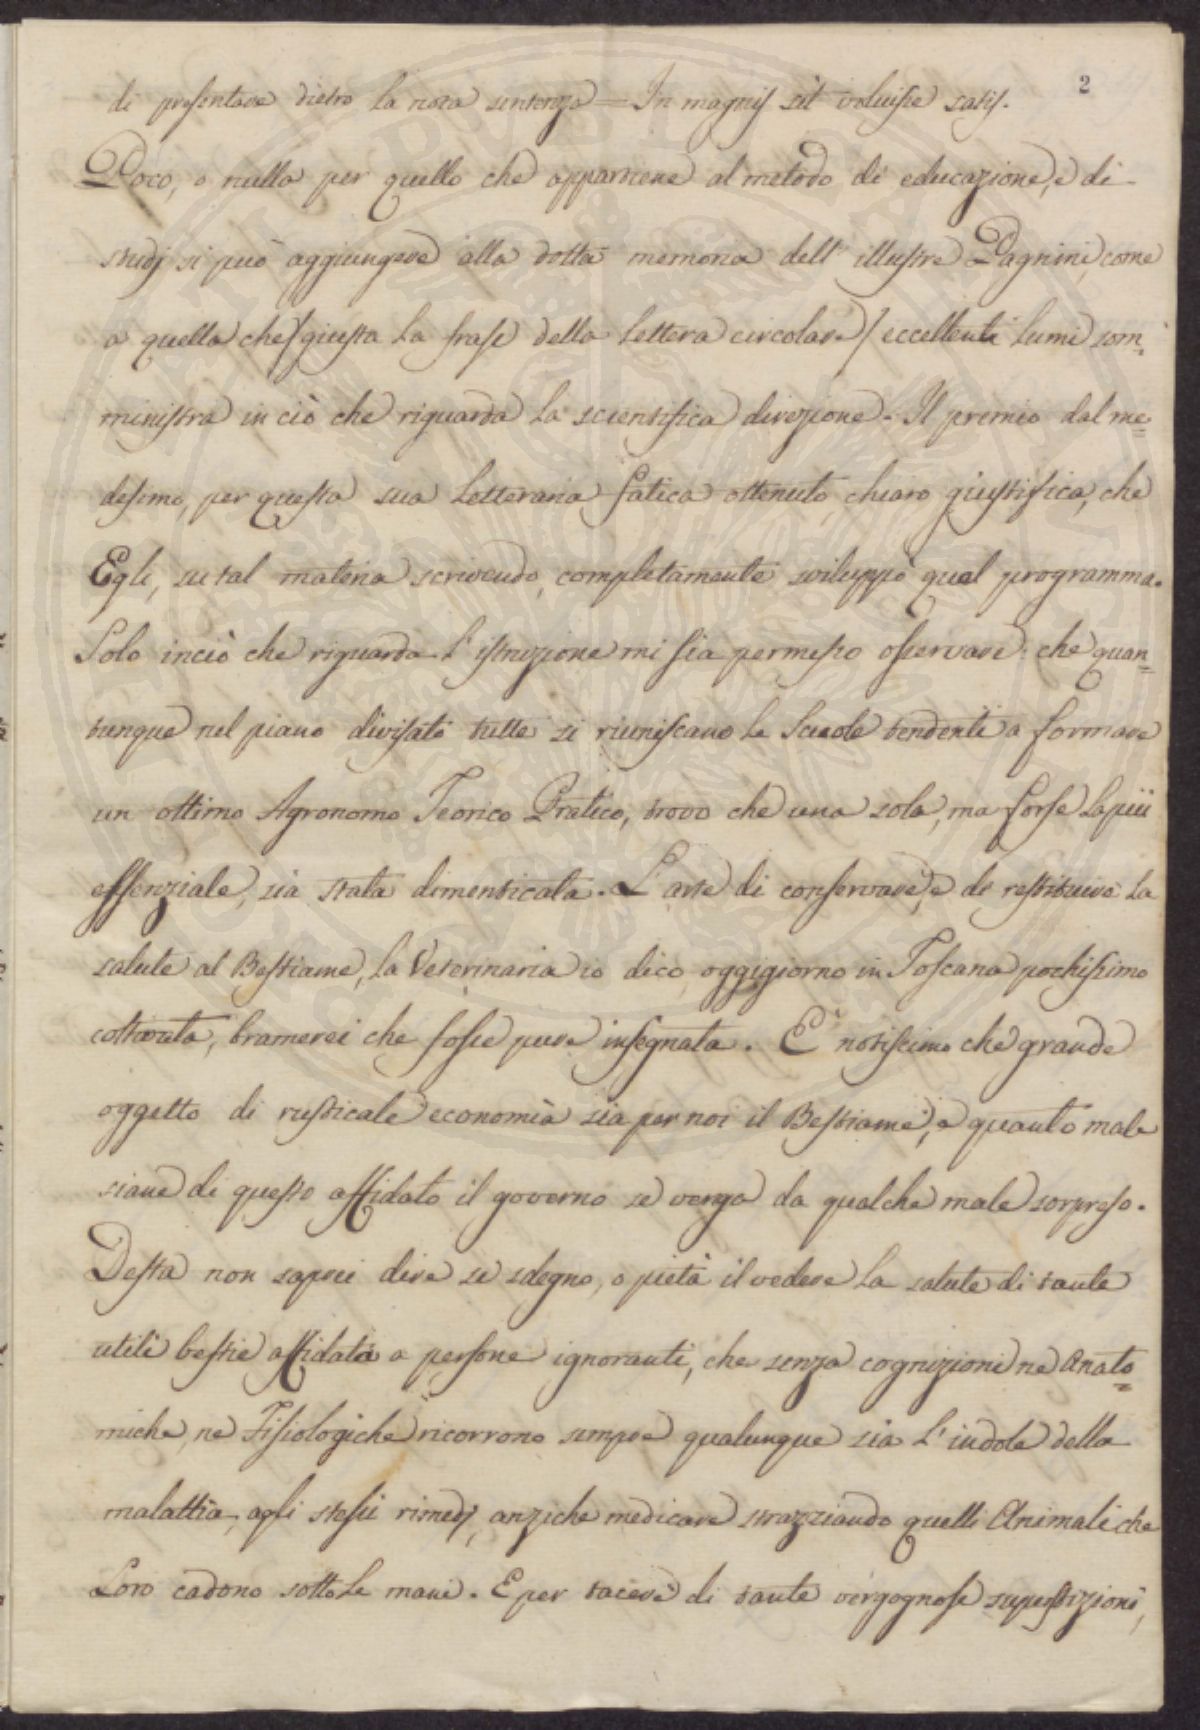 2
di presentare dietro la nota sentenza = In magnis sit voluisse satis.
Poco, o nulla per quello che appartiene al metodo di educazione, e di
studj si può aggiungere alla dotta memoria dell' illustre Pagnini, come
a quella che /giusta la frase della lettera circolare/ eccellenti lumi som=
ministra in ciò che riguarda la scientifica direzione. Il premio dal me=
desimo, per questa sua letteraria fatica ottenuto, chiaro giustifica, che
Egli, su tal materia scrivendo, completamente sviluppò quel programma.
Solo in ciò che riguarda l' istruzione mi sia permesso osservare che quan=
tunque nel piano divisato tutte si riuniscano le Scuole tendenti a formare
un ottimo Agronomo Teorico Pratico, trovo che una sola, ma forse la più
essenziale, sia stata dimenticata. L' arte di conservare, e di restituire la
salute al Bestiame, la Veterinaria io dico, oggigiorno in Toscana pochissimo
coltivata, bramerei che fosse pure insegnata. È notissimo che grande
oggetto di rusticale economia sia per noi il Bestiame, e quanto male
siane di questo affidato il governo se venga da qualche male sorpreso.
Desta non saprei dire se sdegno, o pietà il vedere la salute di tante
utili bestie affidata a persone ignoranti, che senza cognizioni ne Anato=
miche, ne Fisiologiche ricorrono sempre qualunque sia l' indole della
malattia, agli stessi rimedj, anziche medicare strazziando quelli Animali che
Loro cadono sotto le mani. E per tacere di tante vergognose superstizioni,